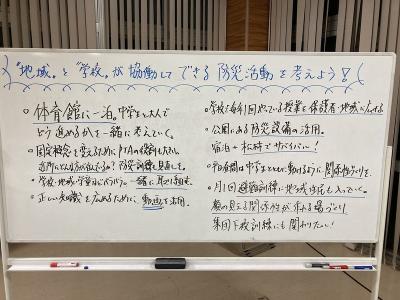 "地域"と"学校"が協働してできる防災活動を考えよう！
○体育館に一泊。中学生と大人で
どう進めるかを一緒に考えていく。
○固定観念を変えるためにPTAの役割も大きい。
防災訓練を見直しを。
○学校・地域・
一緒に
○正しい知識を広めるために、動画で活用。
○学校で毎年1回やっている授業を保護者・地域に広げる
○公園にある防災設備の活用。
宿泊+松時でサバイバル！
○平日昼間は中学生とともに動けるように関係性づくりを。
○月1回避難訓練に地域住民も入っていく。
顔の見える関係性が作れる場づくり
集団下校訓練にも関わりたい！